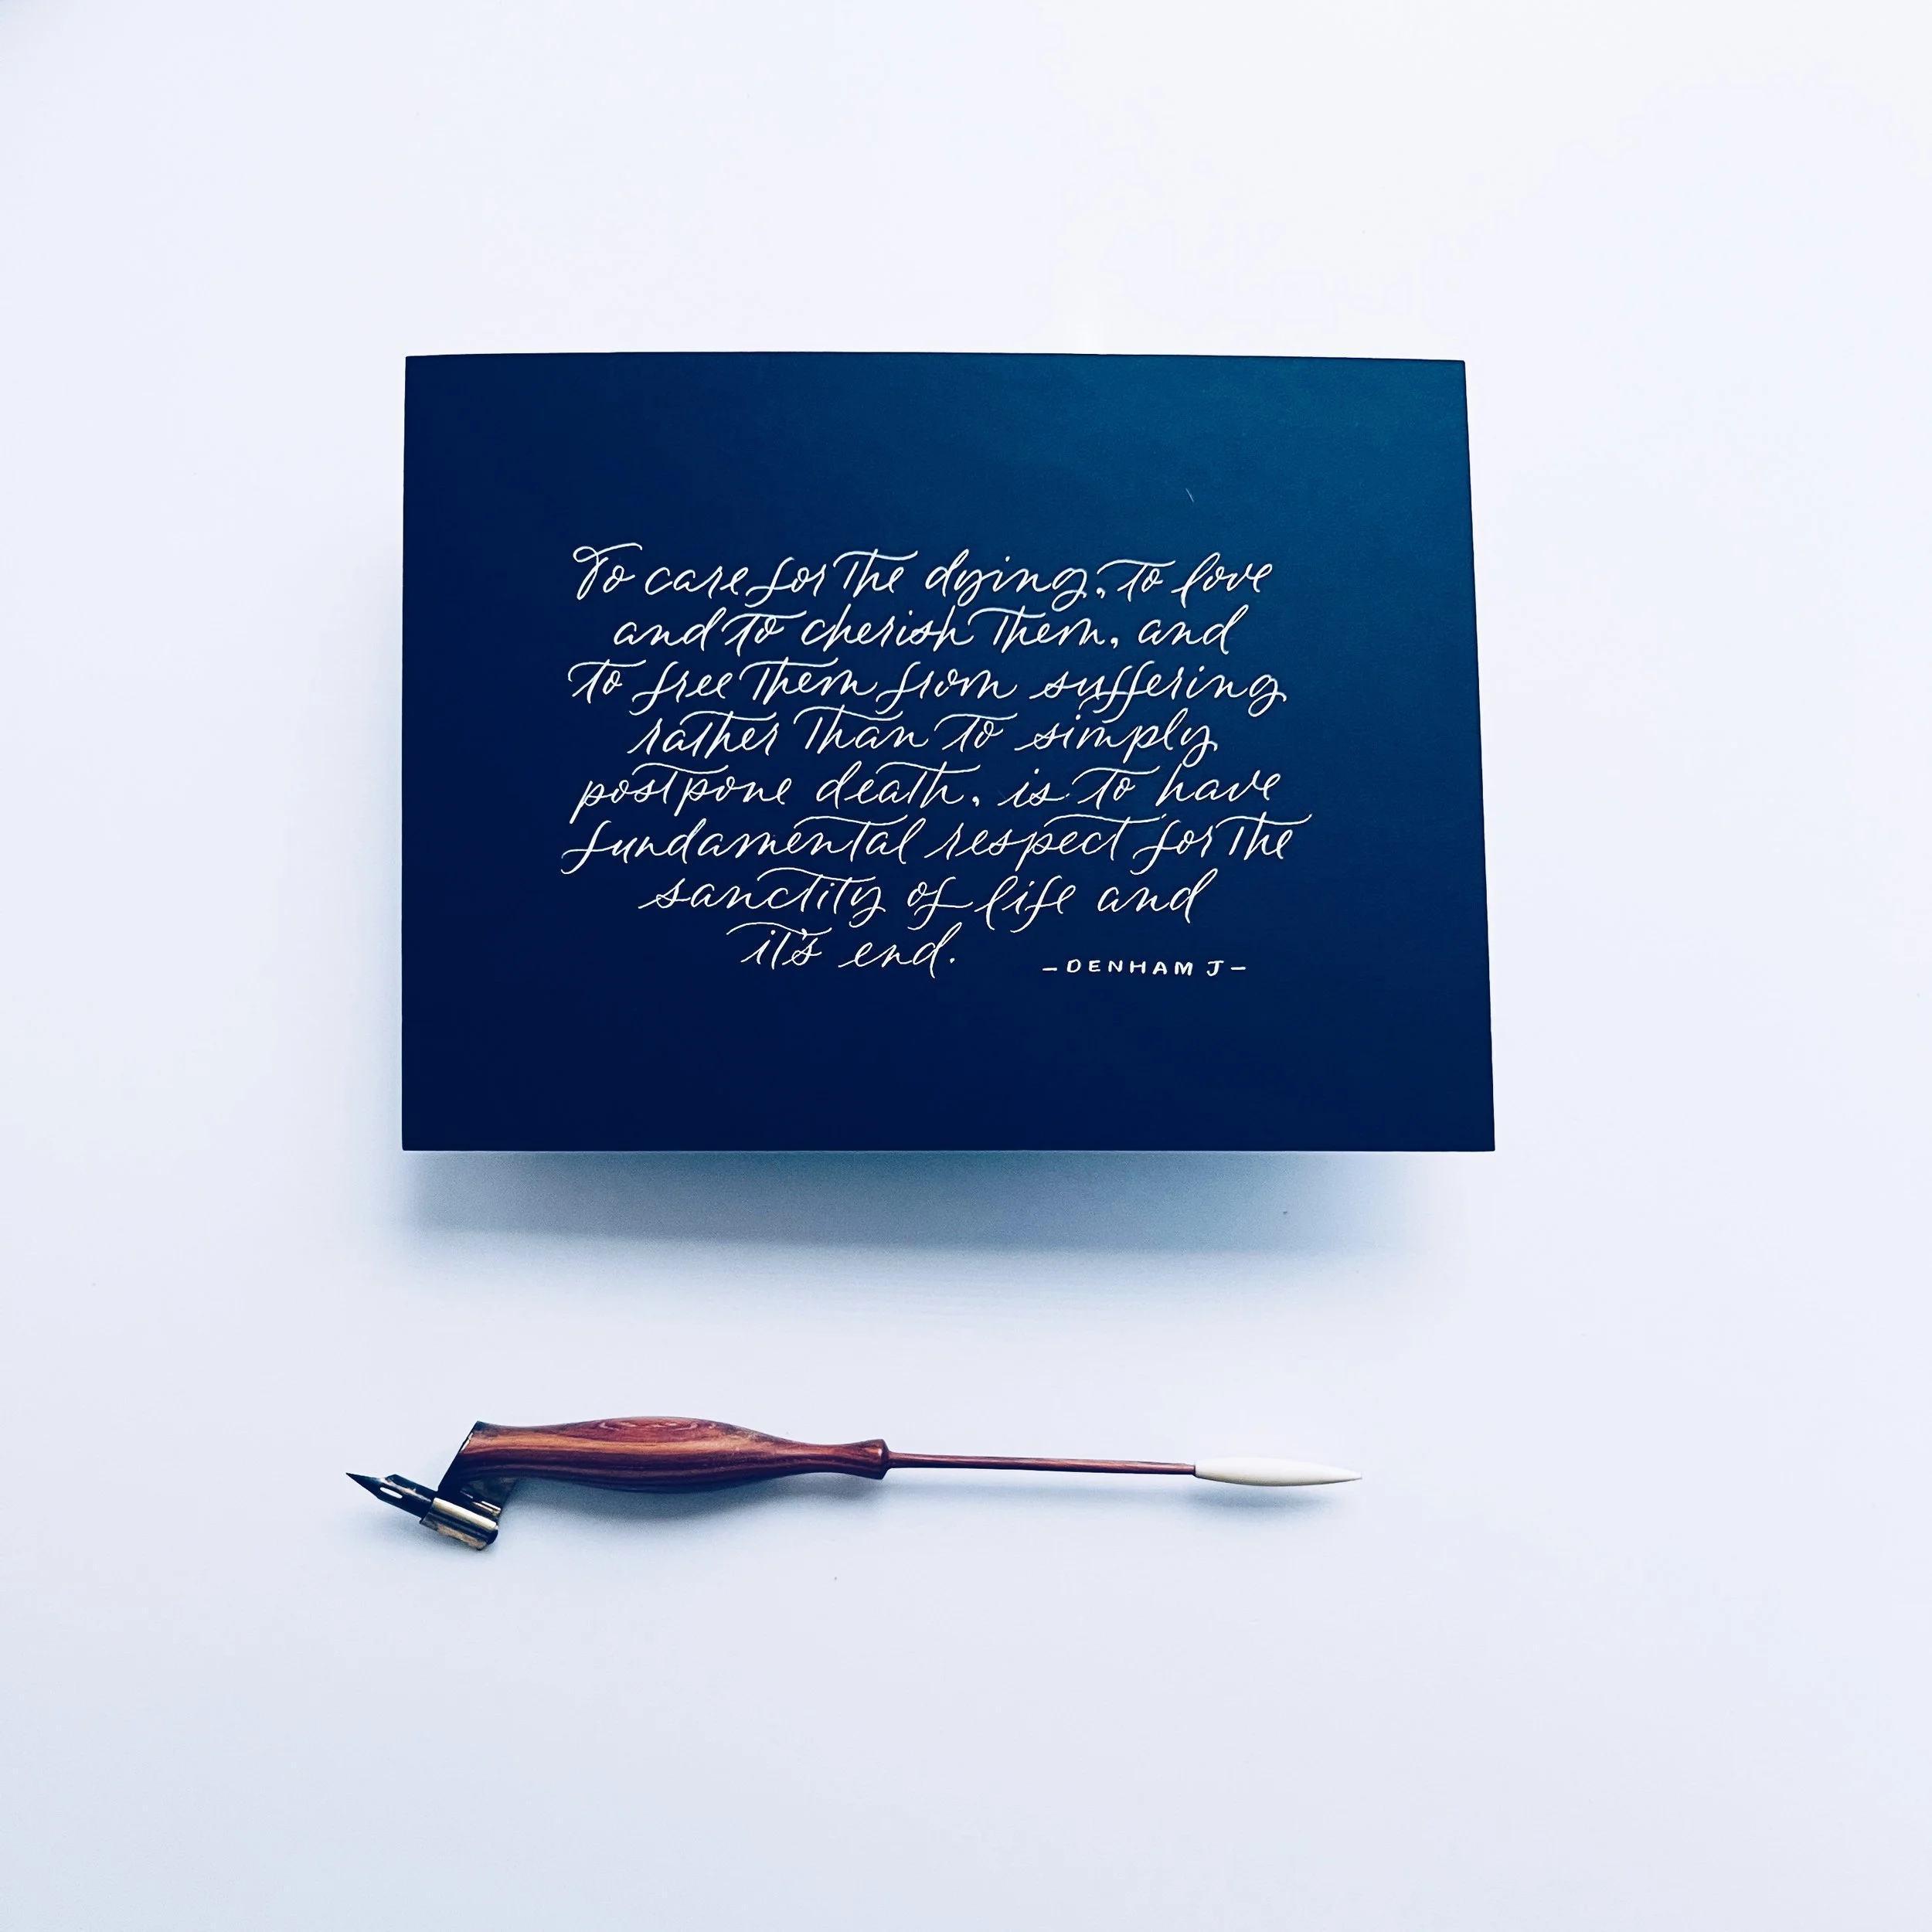 To care for the dying, to love
and to cherish them, and
to free them from suffering
rather than to simply
postpone death, is to have
fundamental respect for the
sanctity of life and
it's end.
-DENHAM J-